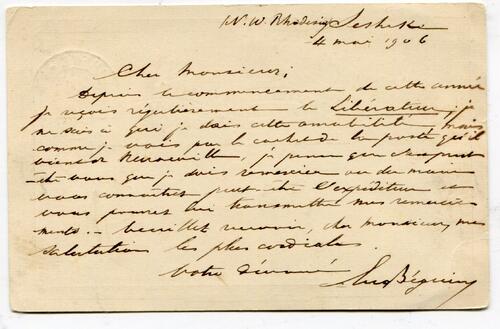 N. W. Rhodesia Sesheke
4 mai 1906
Cher Monsieur,
Depuis le commencement de cette année
je reçois régulièrement le Libérateur; je
ne sais à qui je dois cette amabilité mais
comme je vois par le cachet de la poste qu'il
vient de, je pense que
vous que je dois remercier ou du moins
vous connaîtrez peut-être l'expéditeur et
vous pourrez lui transmettre mes remercie-
ments. - Veuillez recevoir, cher monsieur, mes
salutations les plus cordiales.
Votre dévoué
Béguin